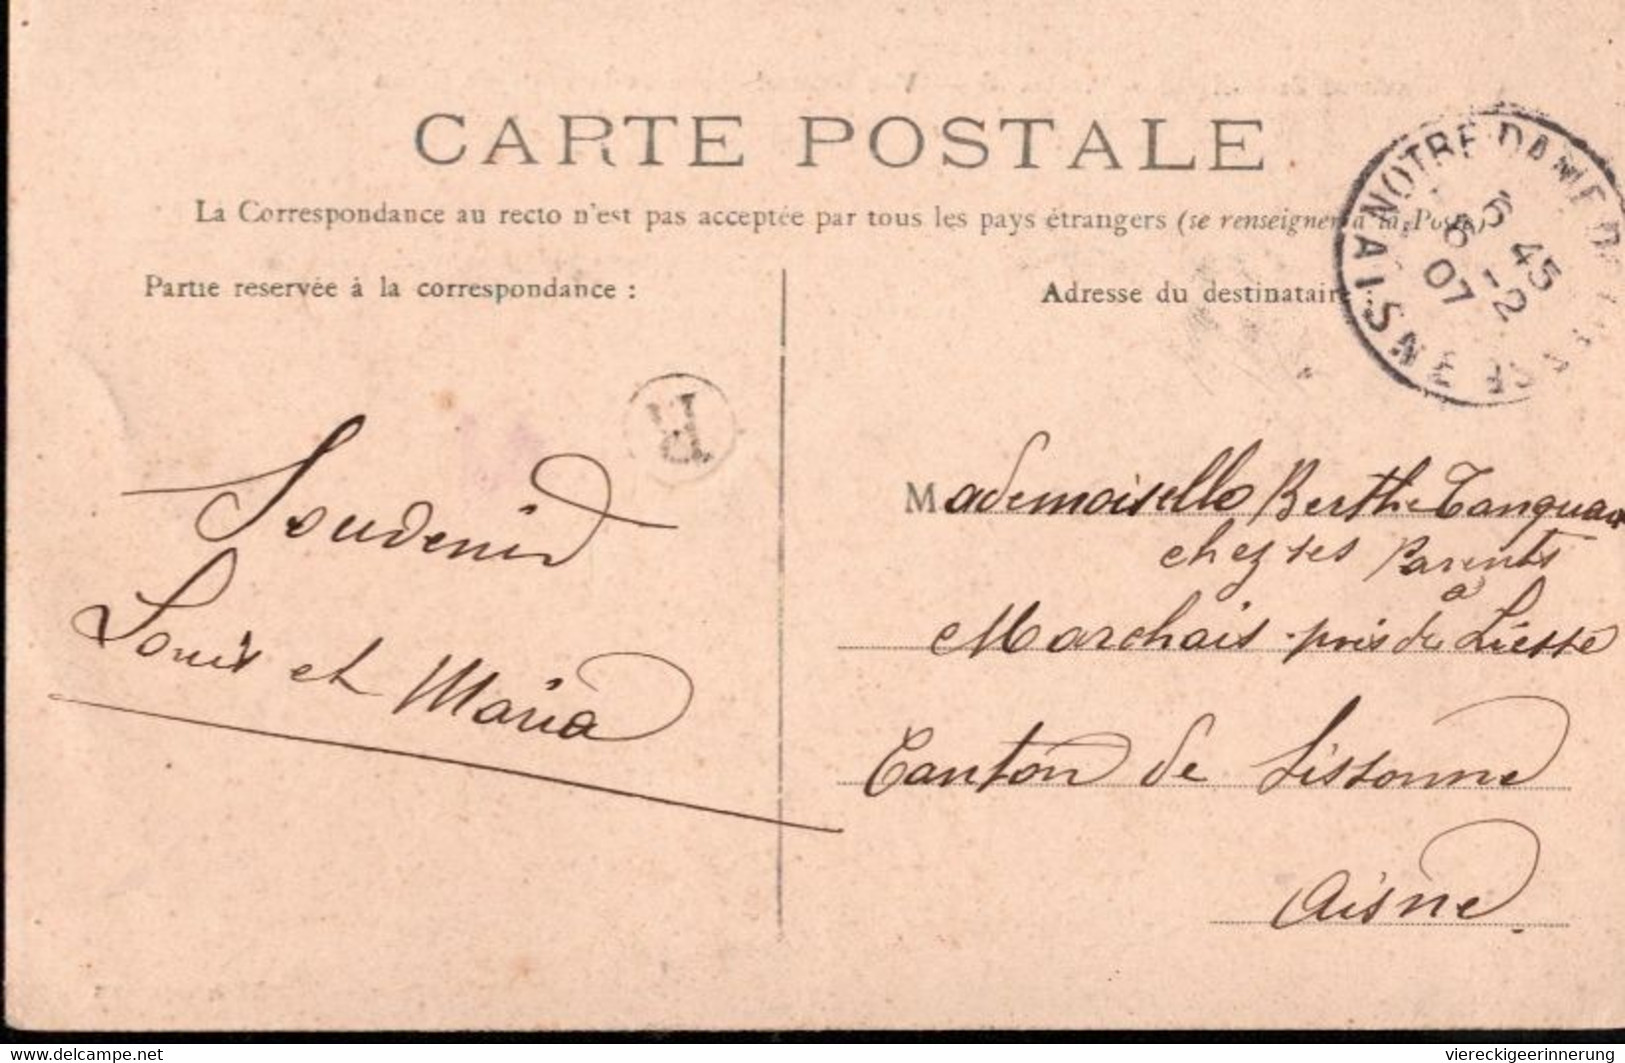 CARTE POSTALE
La Correspondance au recto n'est pas acceptée par tous les pays étrangers (se renseigner à la Poste)
Partie reservée à la correspondance :
Adresse du destinataire
NOTRE DAME DE
AISNE
6 45
6 - 2
07
R
Souvenir
Louis et Maria
Mademoiselle Berthe
chez ses Parents
à
Marchais près de Liesse
Canton de Sissonne
Aisne
viereckigeerinnerung
www.delcampe.net